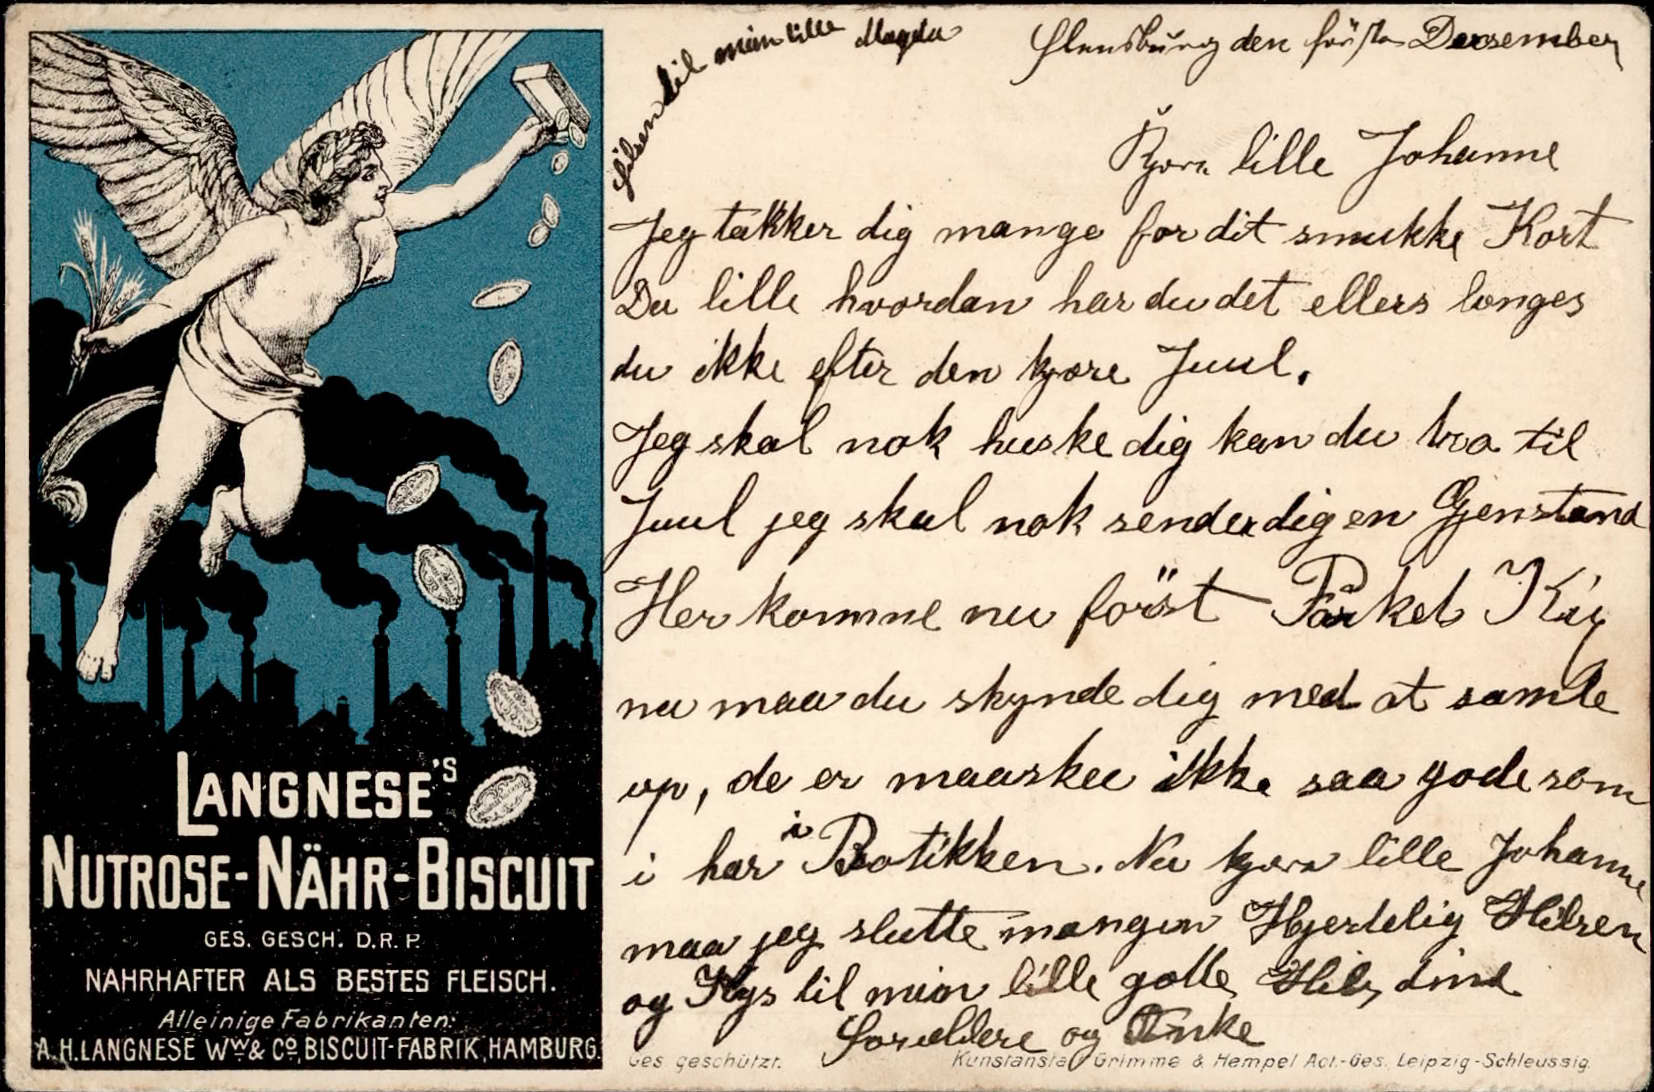 Hilsen til min lille Magda
Flensburg den förste Desember
Kjære lille Johanne
Jeg takker dig mange for dit smukke Kort
Du lille hvordan har du det ellers længes
du ikke efter den kjære Juul.
Jeg skal nok huske dig kan du tro til
Juul jeg skal nok sender dig en Gjenstand
Her komme nu först
nu maa du skynde dig med at samle
op, de er maaskee ikke saa gode som
i har i Botikken. Nu kjære lille Johanne
maa jeg slutte mangen Hjertelig Hilsen
og Kys til min lille Hils dine
Forældere og
LANGNESE'S
NUTROSE-NÄHR-BISCUIT
GES. GESCH. D.R.P.
NAHRHAFTER ALS BESTES FLEISCH.
Alleinige Fabrikanten:
A.H. LANGNESE Ww. & Co, BISCUIT-FABRIK, HAMBURG.
Ges geschützt.
Kunstanstalt Grimme & Hempel Act.-Ges. Leipzig-Schleussig.